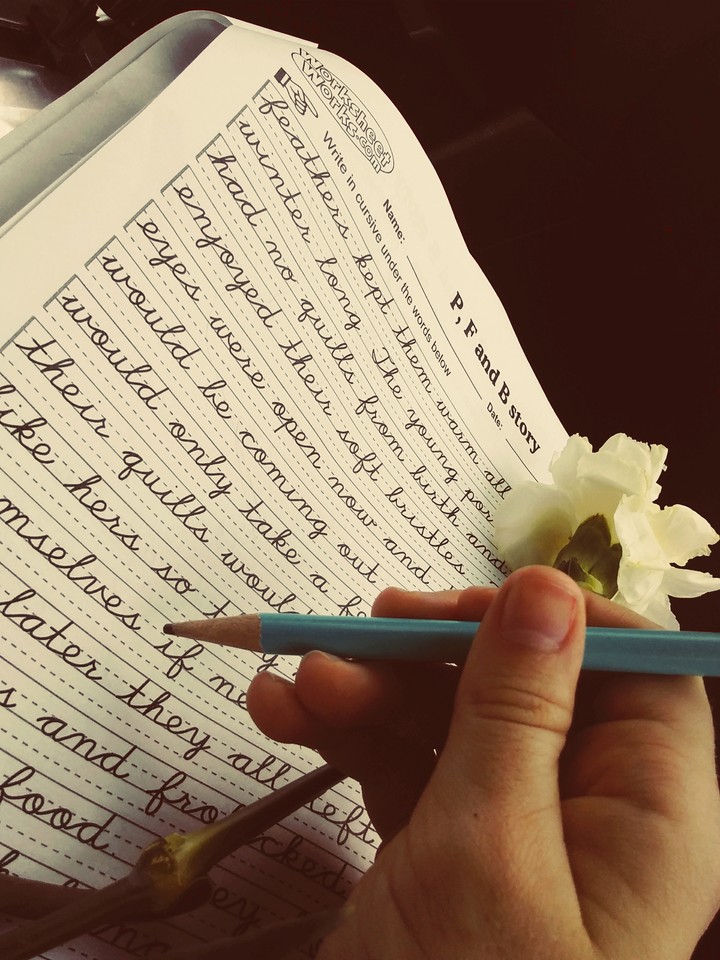 Worksheet
Works.com
P, F and B story
Name: Date:
Write in cursive under the words below
feathers kept them warm all
winter long The young por
had no quills from birth and
enjoyed their soft bristles
eyes were open now and
would be coming out
would only take a
their quills would
like hers so
mselves if
later they all left
s and
food